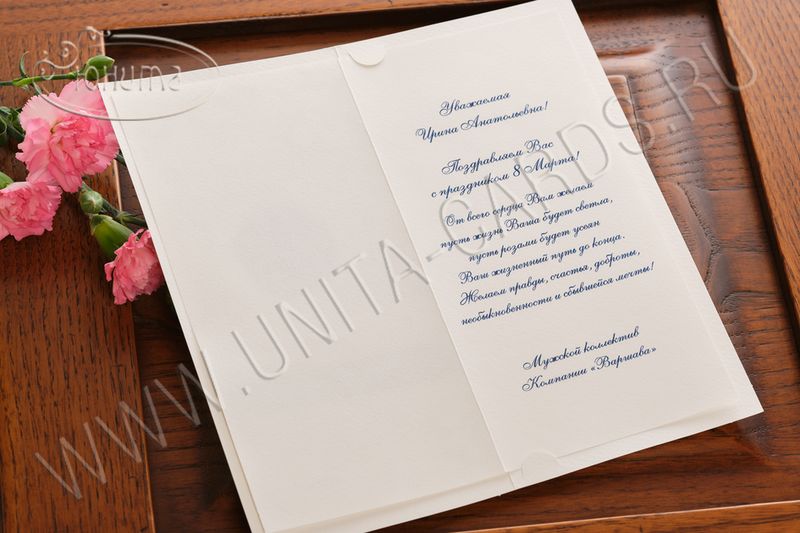 Юнита
Уважаемая
Ирина Анатольевна!
Поздравляем Вас
с праздником 8 Марта!
От всего сердца Вам желаем
пусть жизнь Ваша будет светла,
пусть розами будет усеян
Ваш жизненный путь до конца.
Желаем правды, счастья, доброты,
необыкновенности и сбывшейся мечты!
Мужской коллектив
Компании «Варшава»
WWW.UNITA-CARDS.RU